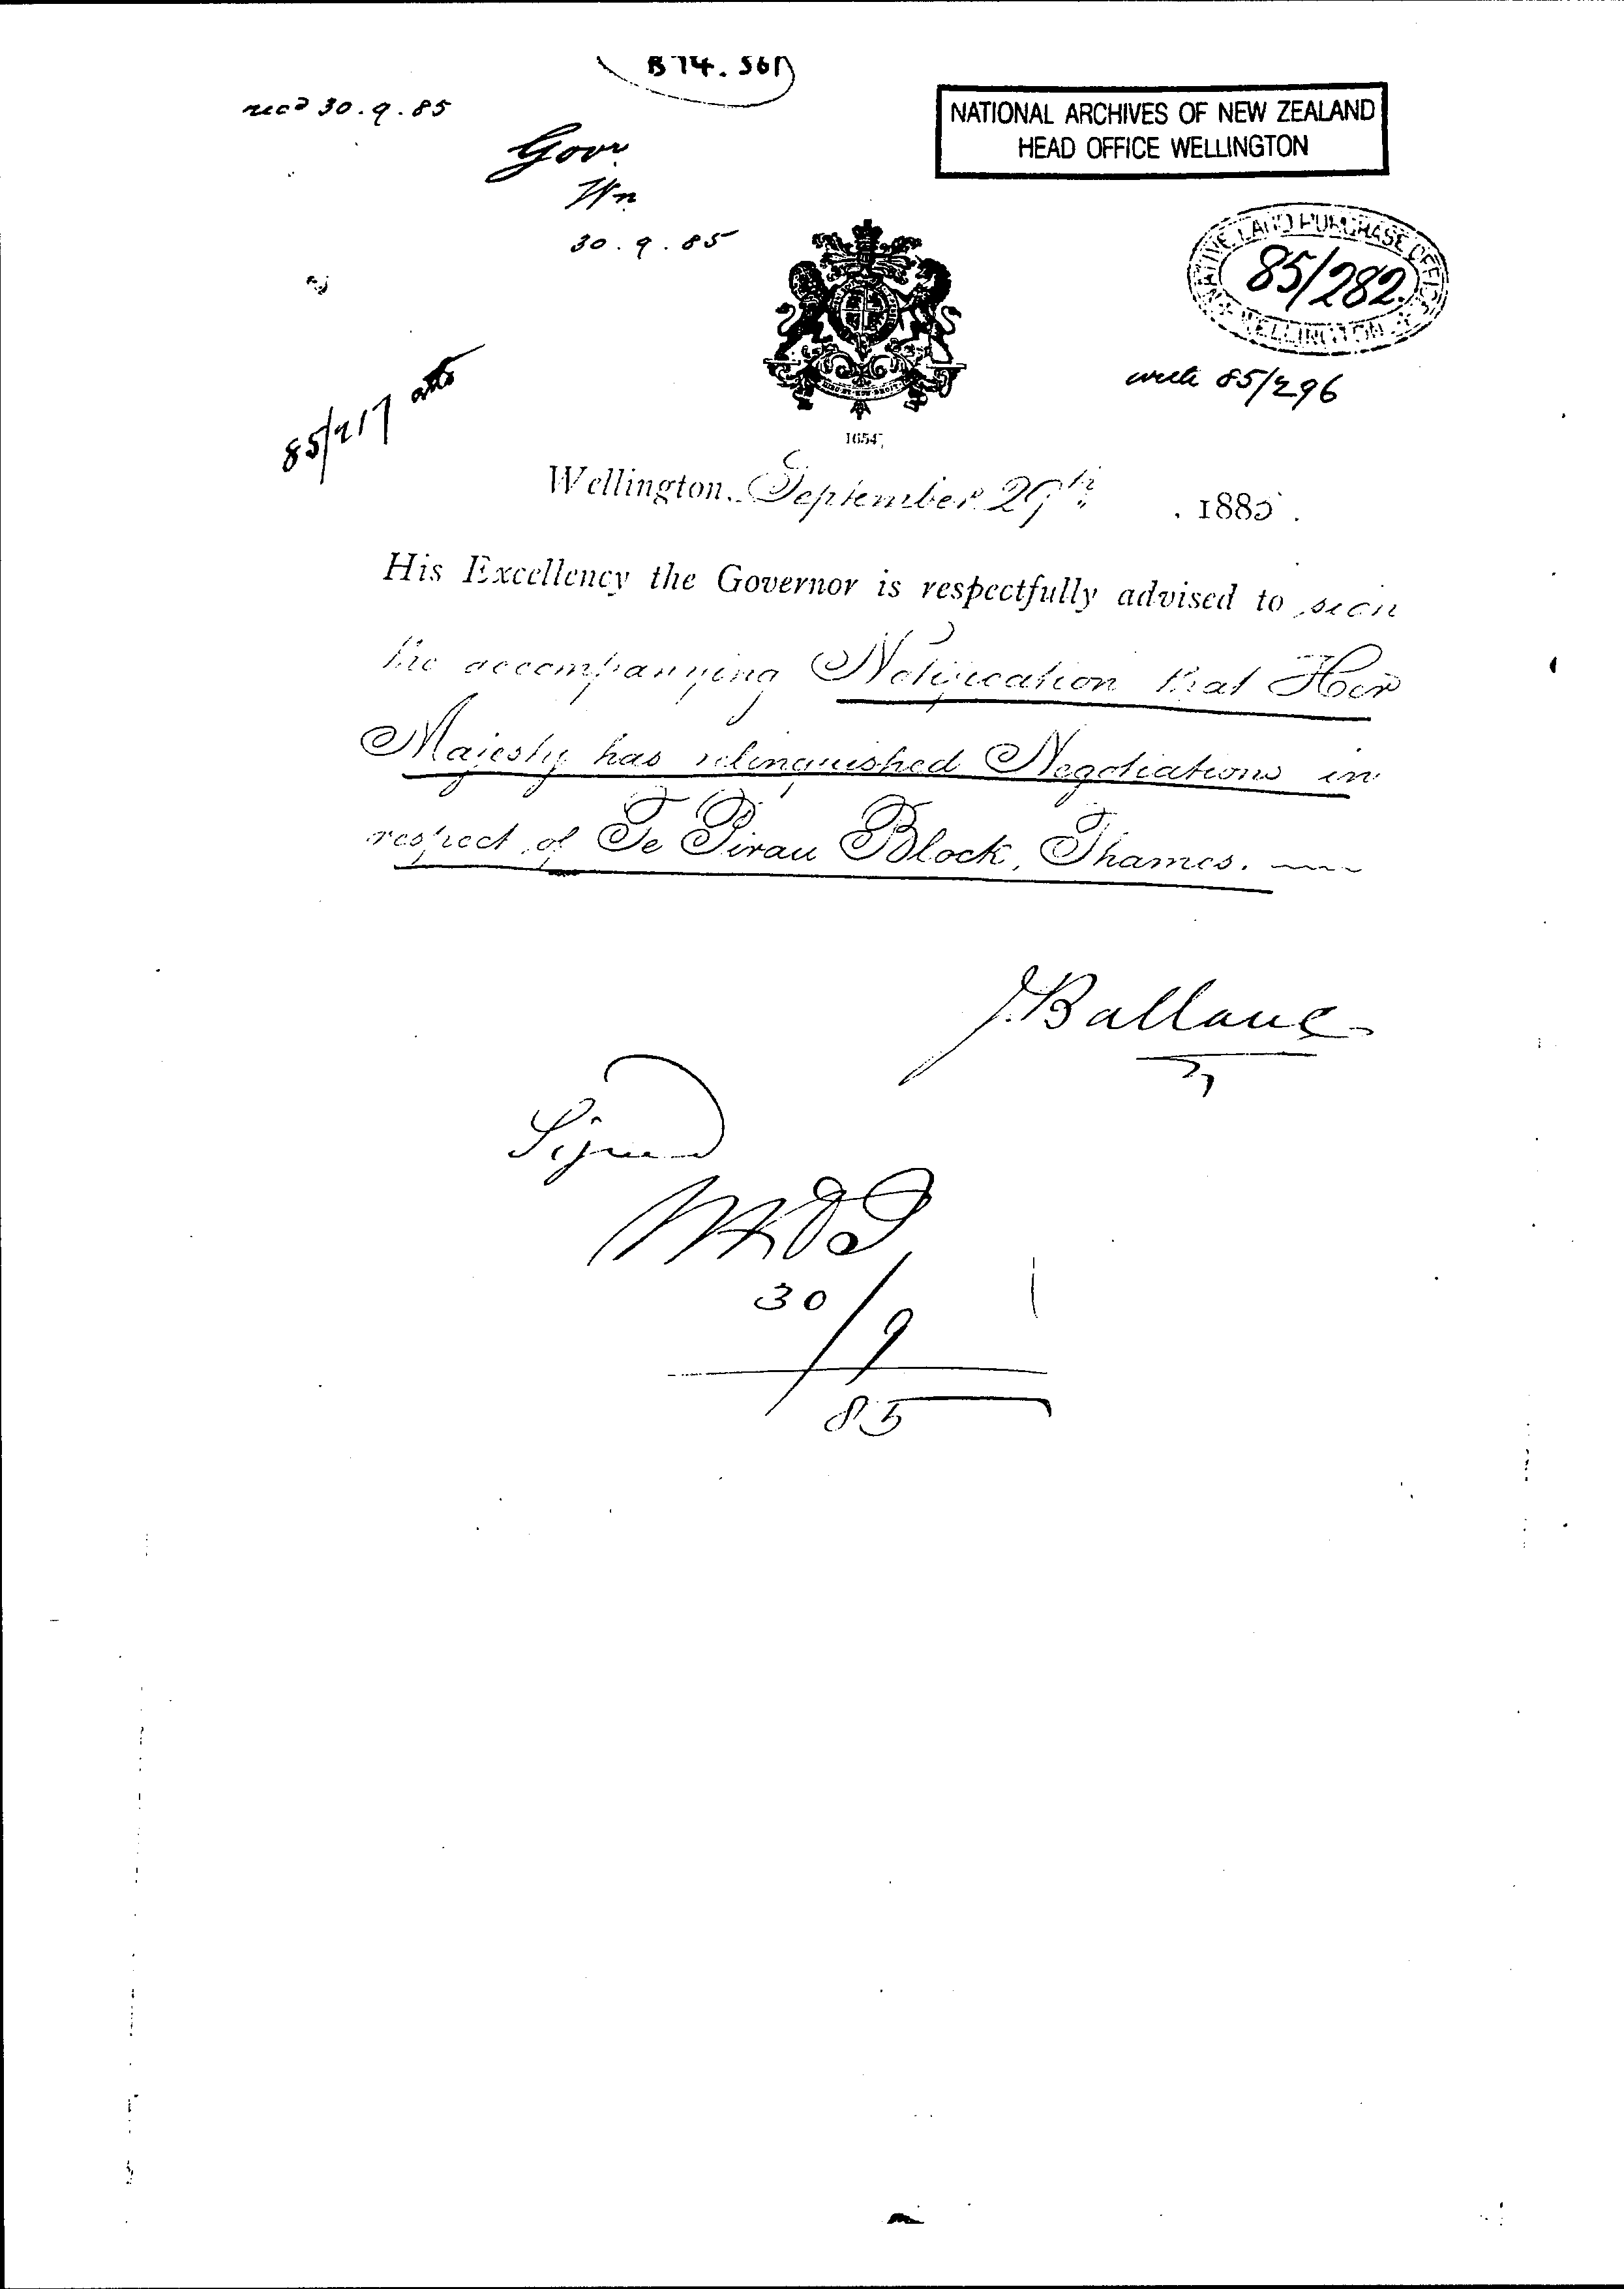 B 74. 56
recd 30.9.85
NATIONAL ARCHIVES OF NEW ZEALAND
HEAD OFFICE WELLINGTON
Govr
Wn
30.9.85
NATIVE LAND PURCHASE OFFICE
85/282
WELLINGTON
85/217
85/296
1654
Wellington, September 29th, 1885.
His Excellency the Governor is respectfully advised to sign
the accompanying Notification that Her
Majesty has relinquished Negotiations in
respect of Te Pirau Block, Thames.
J. Ballance
Signed
30/9
85